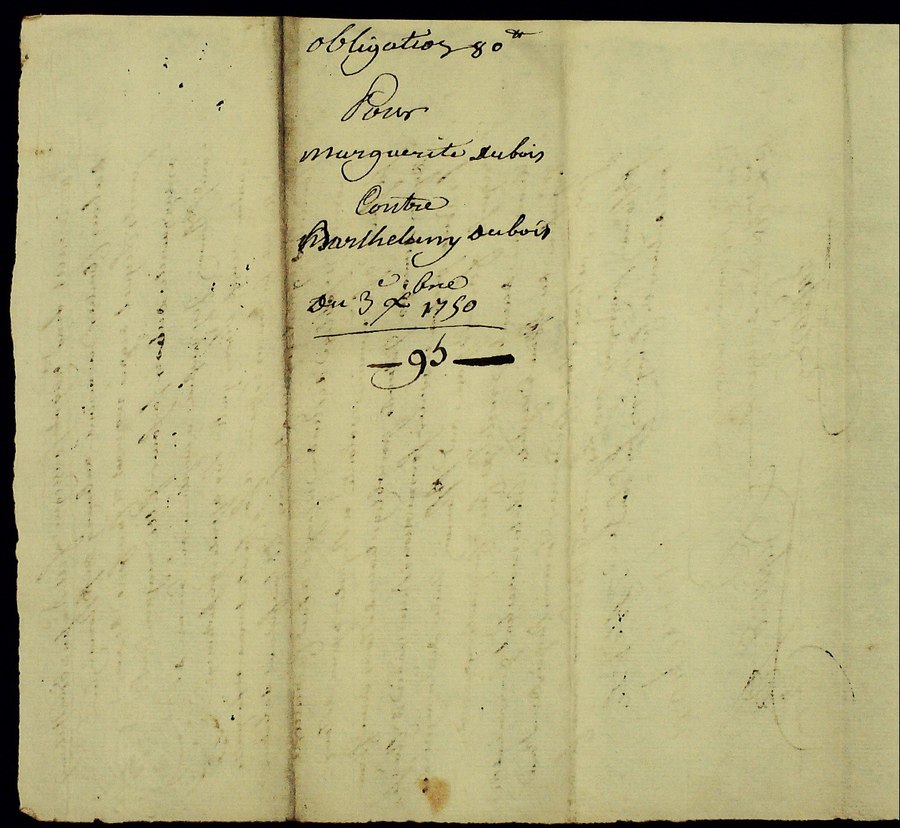 obligation 80 ₶
Pour
marguerite dubois
Contre
Barthelemy dubois
Du 3e Xbre 1750
— 95 —